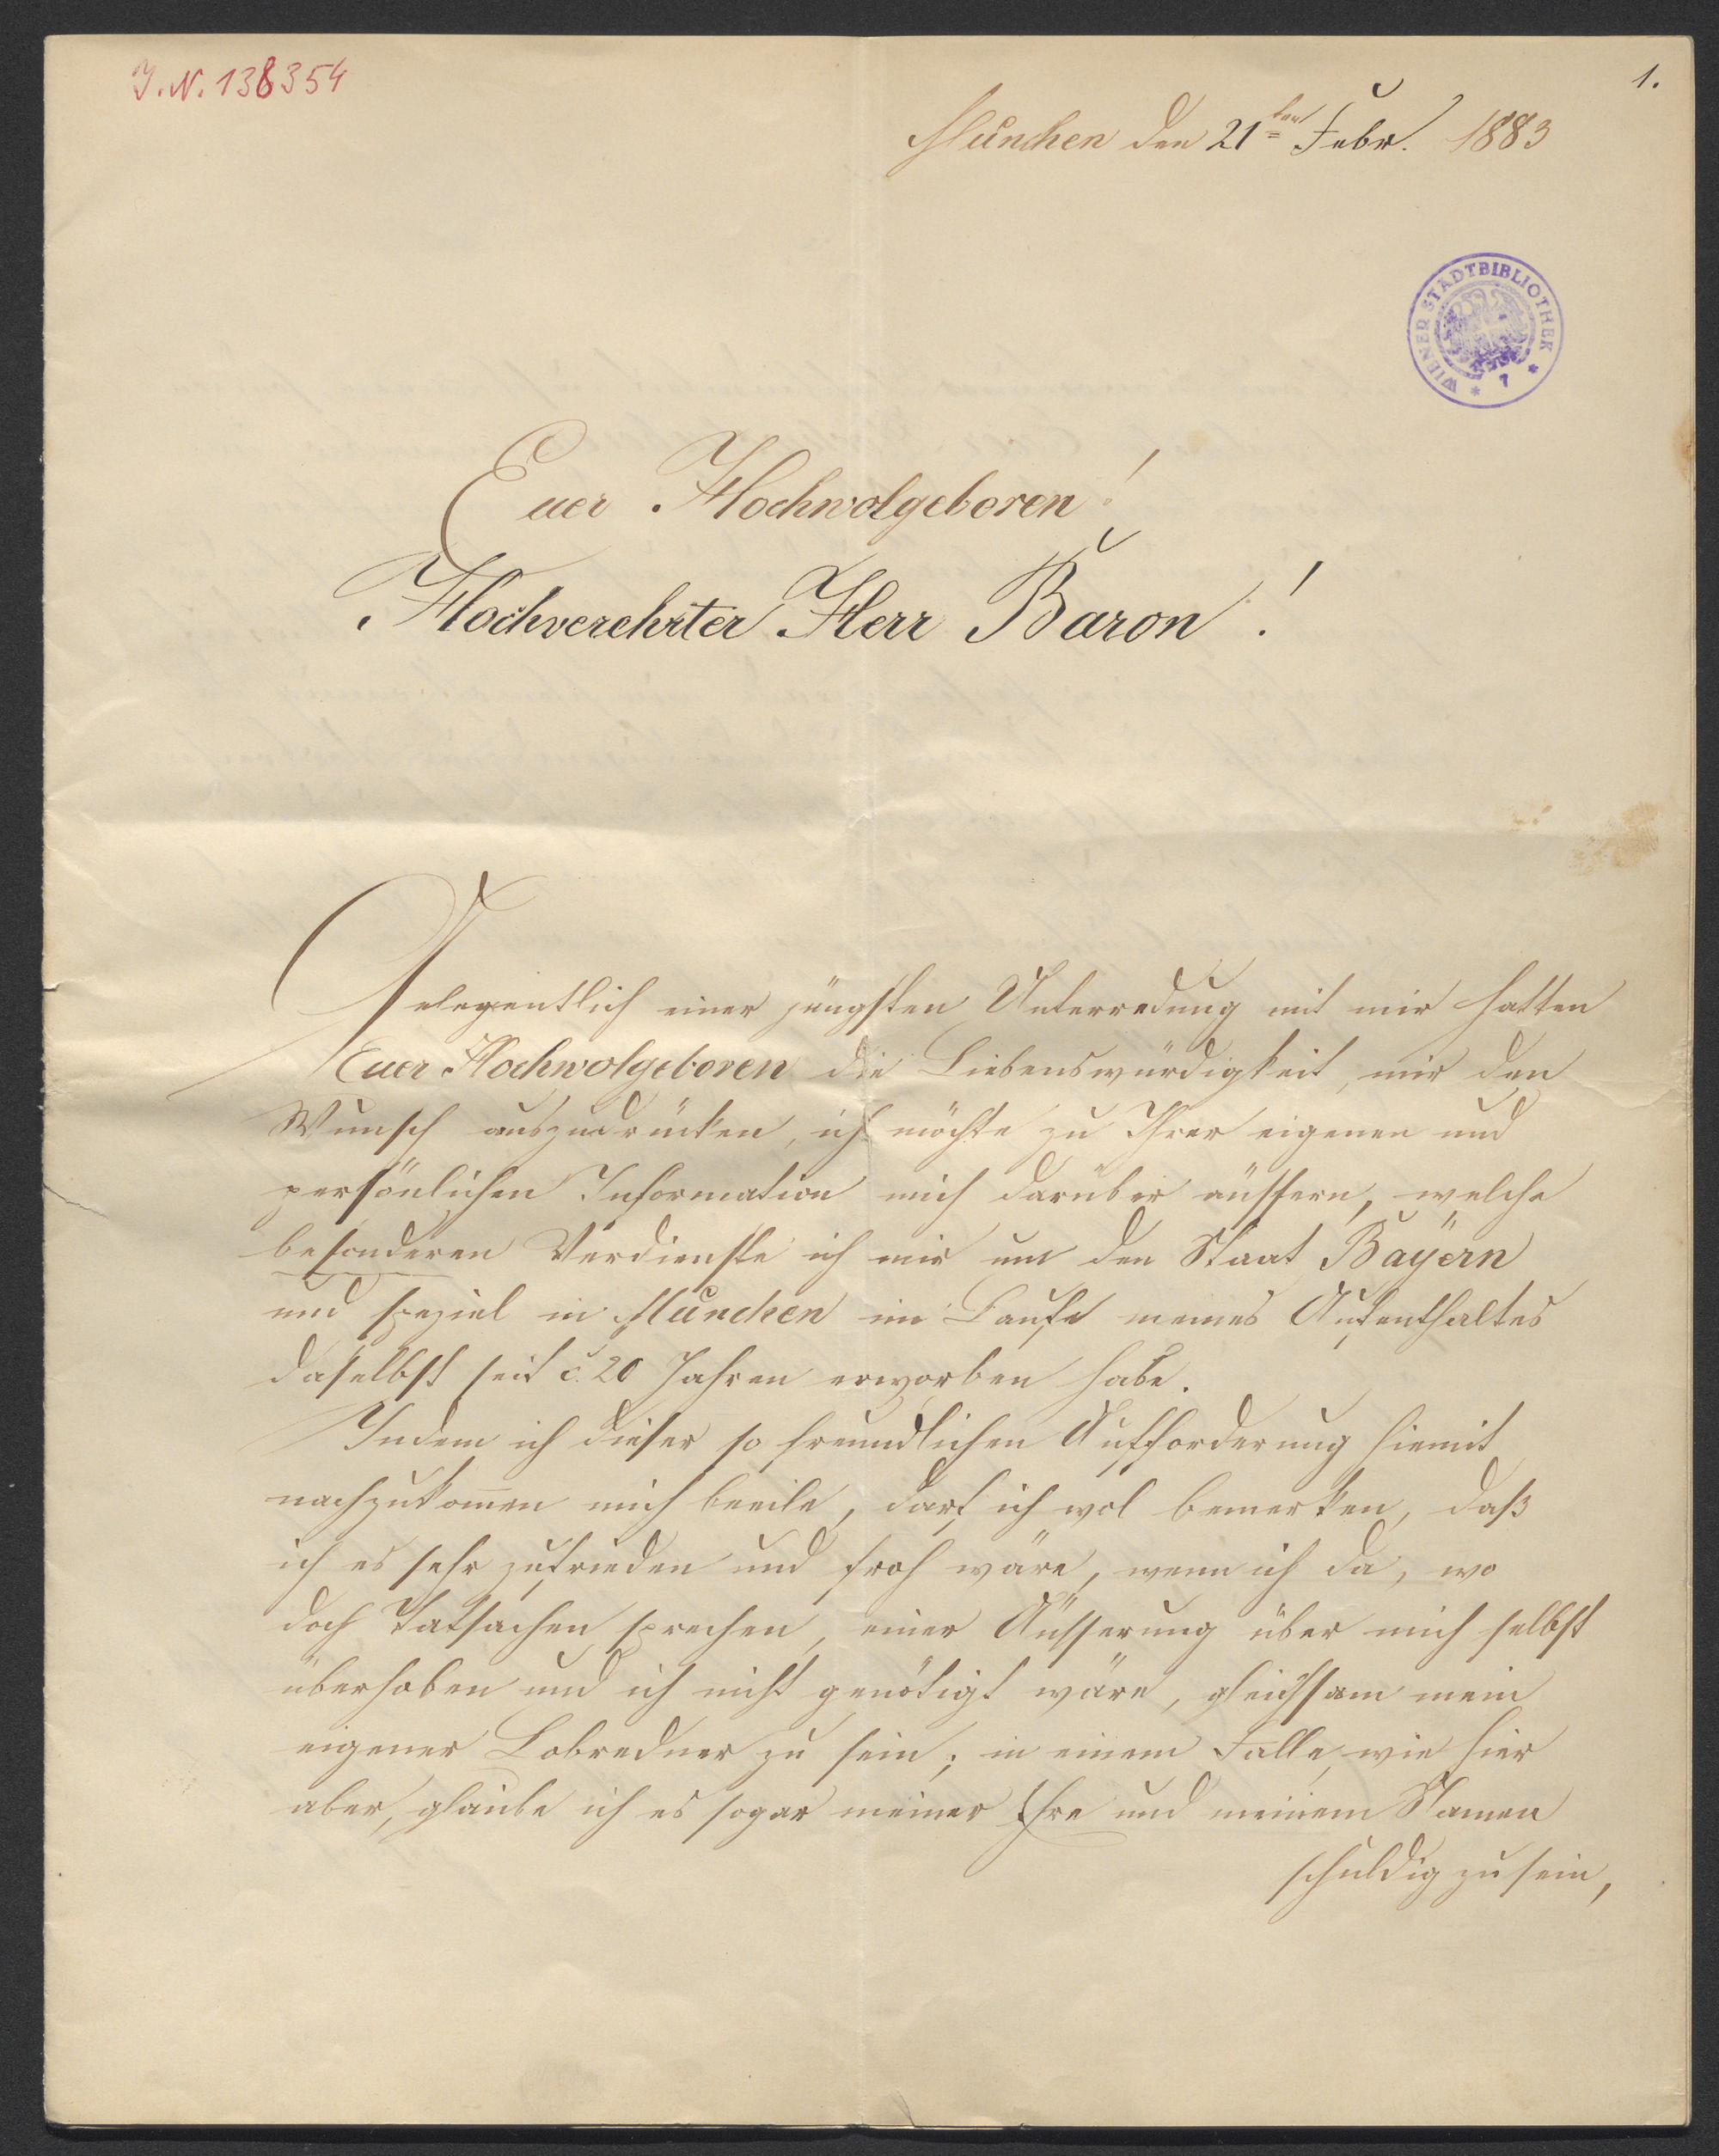 J.N. 138354
1.
München den 21ten Febr. 1883
WIENER STADTBIBLIOTHEK * 7 *
Euer Hochwolgeboren!
Hochverehrter Herr Baron!
Gelegentlich einer jüngsten Unterredung mit mir hatten
Euer Hochwolgeboren die Liebenswürdigkeit, mir den
Wunsch auszudrücken, ich möchte zu Ihrer eigenen und
persönlichen Information mich darüber äussern, welche
besonderen Verdienste ich mir um den Staat Bayern
und speziel in München im Laufe meines Aufenthaltes
daselbst seit c. 20 Jahren erworben habe.
Indem ich dieser so freundlichen Aufforderung hiemit
nachzukom̅en mich beeile, darf ich wol bemerken, daß
ich es sehr zufrieden und froh wäre, wenn ich da, wo
doch Tatsachen sprechen, einer Äusserung über mich selbst
überhoben und ich nicht genötigt wäre, gleichsam mein
eigener Lobredner zu sein; in einem Falle, wie hier
aber, glaube ich es sogar meiner Ehre und meinem Namen
schuldig zu sein,